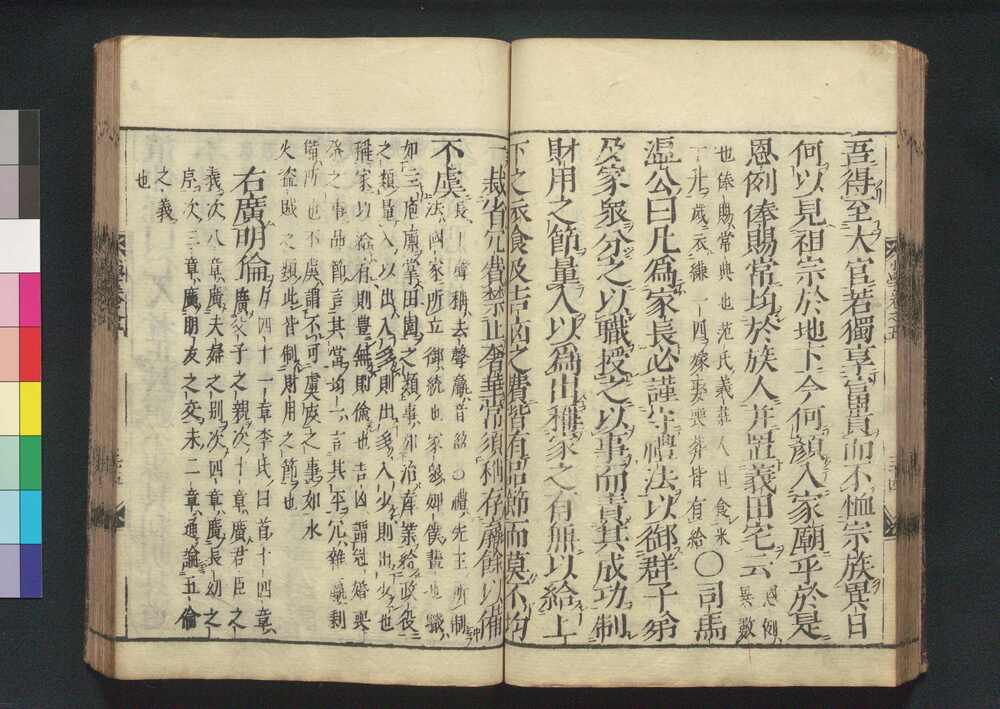 吾得至大官若獨享富貴而不恤宗族異日
何以見祖宗於地下今何顏入家廟乎於是
恩例俸賜常均於族人并置義田宅云 恩例異數
也俸賜常典也范氏義莊人日食米
一升歲衣縑一匹嫁娶喪葬皆有給 〇司馬
溫公曰凡爲家長必謹守禮法以御群子弟
及家衆分之以職授之以事而責其成功制
財用之節量入以爲出稱家之有無以給上
下之衣食及吉凶之費皆有品節而莫不均
一裁省冗費禁止奢華常須稍存贏餘以備
不虞 長上聲稱去聲贏音盈〇禮先王所制
法國家所立御統也家衆如僕妾也職
如三庖廩掌田園之類事如治産業給政役
之類量入以出入多則出多入少則出少也
稱家以給有則豊無則儉也吉凶謂冠婚喪
祭之事品節言其當均一言其平冗雜贏剰
備所也不虞謂不可虞度之事如水
火盜賊之類此皆制財用之節也
右廣明倫 凡四十一章李氏曰首十四章
廣父子之親次十章廣君臣之
義次八章廣夫婦之別次四章廣長幼之
序次三章廣朋友之交末二章通論五倫
之義
也